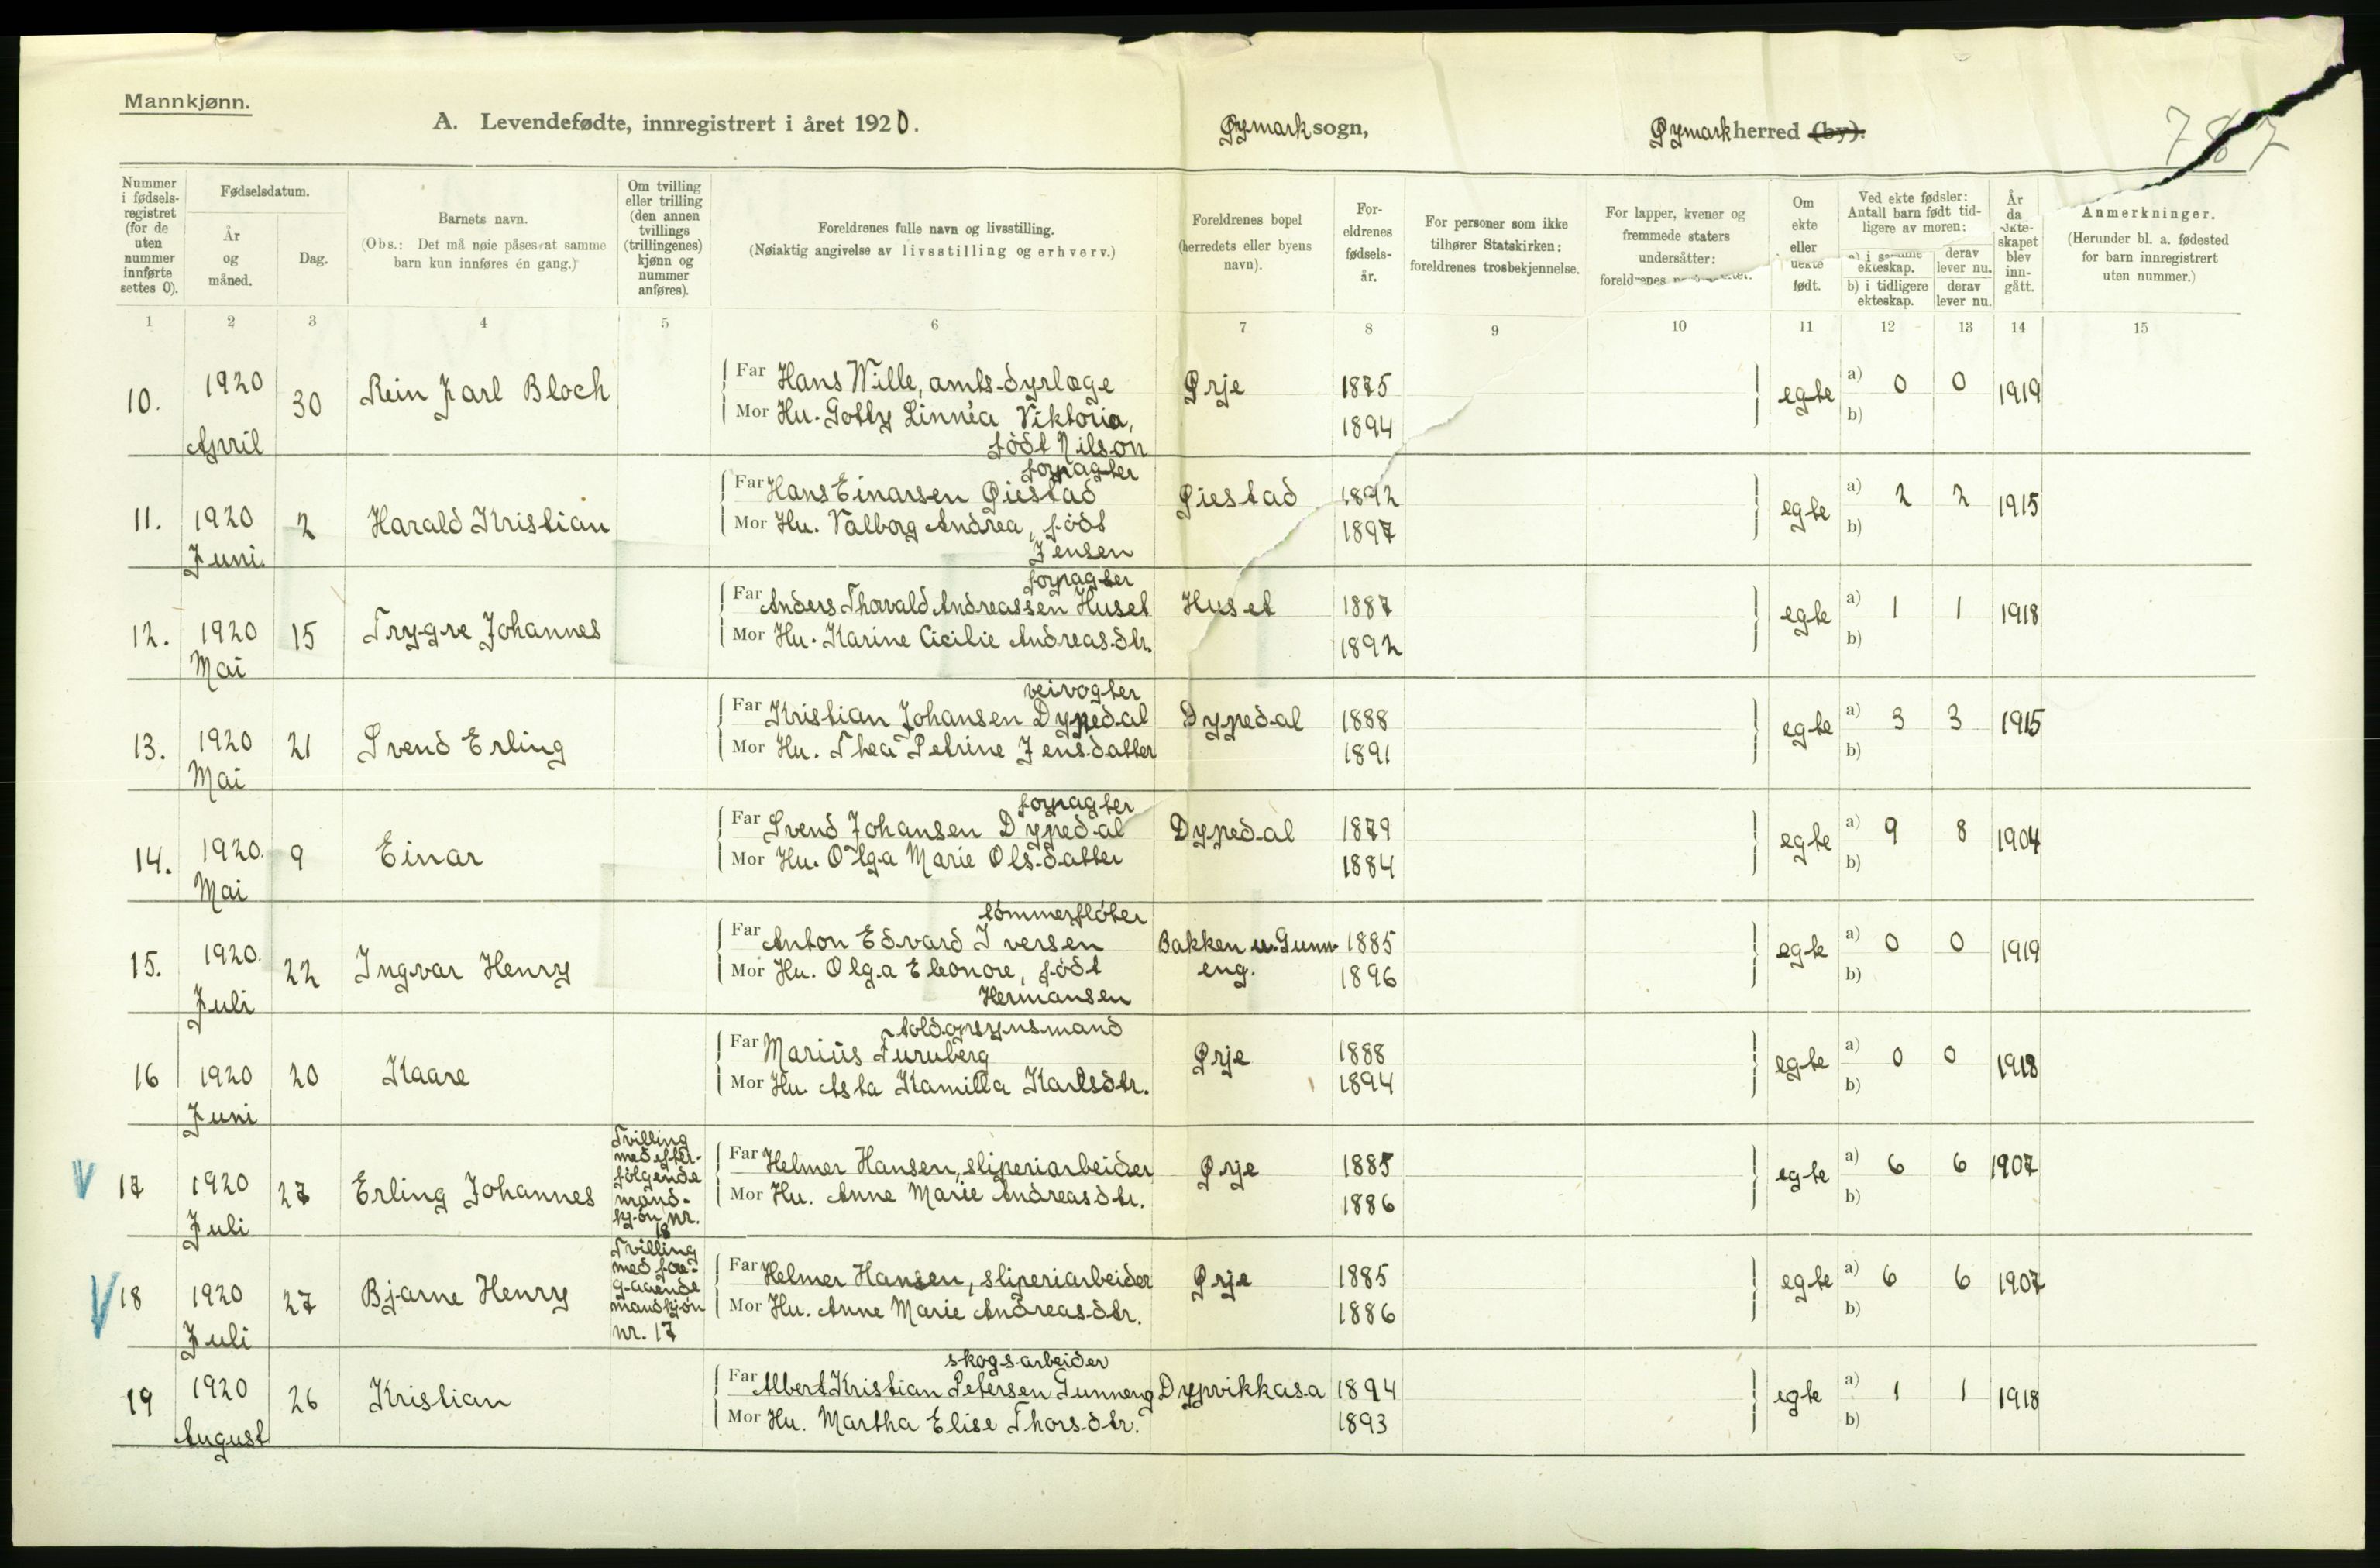 Mannkjønn.
A. Levendefødte, innregistrert i året 1920.
Øymark sogn,
Øymark herred (by).
787
Nummer i fødsels-registret (for de uten nummer innførte settes 0).
Fødselsdatum.
År og måned.
Dag.
Barnets navn.
(Obs.: Det må nøie påses at samme barn kun innføres én gang.)
Om tvilling eller trilling (den annen tvillings (trillingenes) kjønn og nummer anføres).
Foreldrenes fulle navn og livsstilling.
(Nøiaktig angivelse av livsstilling og erhverv.)
Foreldrenes bopel (herredets eller byens navn).
For-eldrenes fødsels-år.
For personer som ikke tilhører Statskirken: foreldrenes trosbekjennelse.
For lapper, kvener og fremmede staters undersåtter: foreldrenes
Om ekte eller uekte født.
Ved ekte fødsler: Antall barn født tid-ligere av moren:
a) i samme ekteskap.
derav lever nu.
b) i tidligere ekteskap.
derav lever nu.
År da ekte-skapet blev inn-gått.
Anmerkninger.
(Herunder bl. a. fødested for barn innregistrert uten nummer.)
1 2 3 4 5 6 7 8 9 10 11 12 13 14 15
10. 1920 April 30 Rein Jarl Bloch
Far Hans Wille, amts-dyrlæge Ørje 1875 egte a) 0 0 1919
Mor Hu. Gotty Linnéa Viktoria, 1894 b)
født Nilson
forpagter
11. 1920 Juni. 2 Harald Kristian
Far Hans Einarsen Øiestad Øiestad 1892 egte a) 2 2 1915
Mor Hu. Valborg Andrea, født 1897 b)
Jensen
forpagter
12. 1920 Mai 15 Trygve Johannes
Far Anders Thorvald Andreassen Huset Huset 1887 egte a) 1 1 1918
Mor Hu. Karine Cicilie Andreasdtr. 1892 b)
veivogter
13. 1920 Mai 21 Svend Erling
Far Kristian Johansen Dypedal Dypedal 1888 egte a) 3 3 1915
Mor Hu. Thea Petrine Jensdatter 1891 b)
forpagter
14. 1920. Mai 9 Einar
Far Svend Johansen Dypedal Dypedal 1879 egte a) 9 8 1904
Mor Hu. Olga Marie Olsdatter 1884 b)
tømmerfløter
15. 1920. Juli 22 Ingvar Henry
Far Anton Edvard Iversen Bakken u. Gunn- 1885 egte a) 0 0 1919
Mor Hu. Olga Eleonore, født eng. 1896 b)
Hermansen
toldopsynsmand
16 1920 Juni 20 Kaare
Far Marius Furuberg Ørje 1888 egte a) 0 0 1918
Mor Hu. Asta Kamilla Karlsdtr. 1894 b)
V 17 1920 Juli 27 Erling Johannes
Tvilling med efter-følgende mand-kjøn nr. 18
Far Helmer Hansen, sliperiarbeider Ørje 1885 egte a) 6 6 1907
Mor Hu. Anne Marie Andreasdtr. 1886 b)
V 18 1920 Juli 27 Bjarne Henry
Tvilling med fore-gaaende mandkjøn nr. 17
Far Helmer Hansen, sliperiarbeider Ørje 1885 egte a) 6 6 1907
Mor Hu. Anne Marie Andreasdtr. 1886 b)
skogsarbeider
19 1920 August 26 Kristian
Far Albert Kristian Petersen Gunneng Dypvikkasa 1894 egte a) 1 1 1918
Mor Hu. Martha Elise Thorsdtr. 1893 b)